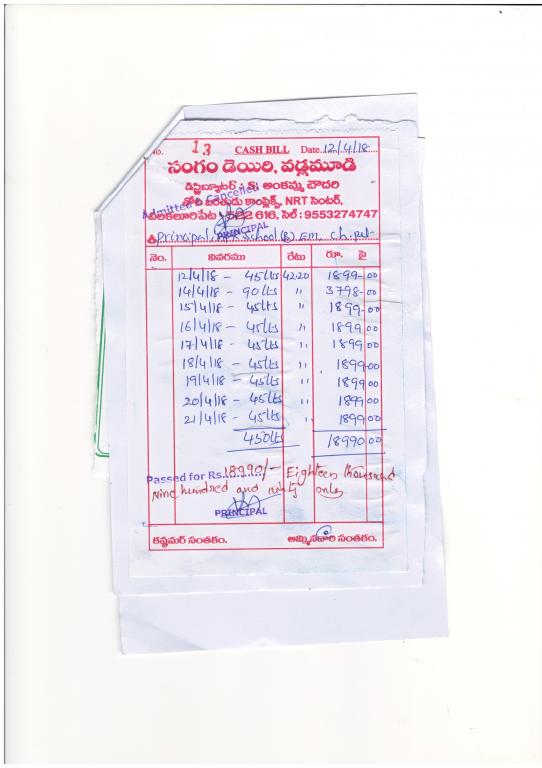 No. 13 CASH BILL Date. 12/4/18
సంగం డెయిరి, వడ్లమూడి
డిస్ట్రిబ్యూటర్ : అంకమ్మ చౌదరి
Admitted & Cancelled
కాంప్లెక్స్, NRT సెంటర్,
చిలకలూరిపేట - 522 616, సెల్ : 9553274747
PRINCIPAL
శ్రీ Principal, School (B) Em. Ch.pet
నెం. వివరము రేటు రూ. పై
12/4/18 - 45lts 42.20 1899-00
14/4/18 - 90lts " 3798-00
15/4/18 - 45lts " 1899-00
16/4/18 - 45lts " 1899 00
17/4/18 - 45lts " 1899 00
18/4/18 - 45lts " 1899 00
19/4/18 - 45lts " 1899 00
20/4/18 - 45lts " 1899 00
21/4/18 - 45lts " 1899 00
450lts 18990.00
Passed for Rs. 18990/- Eighteen thousand
nine hundred and ninty only
PRINCIPAL
కష్టమర్ సంతకం. అమ్మినవారి సంతకం.